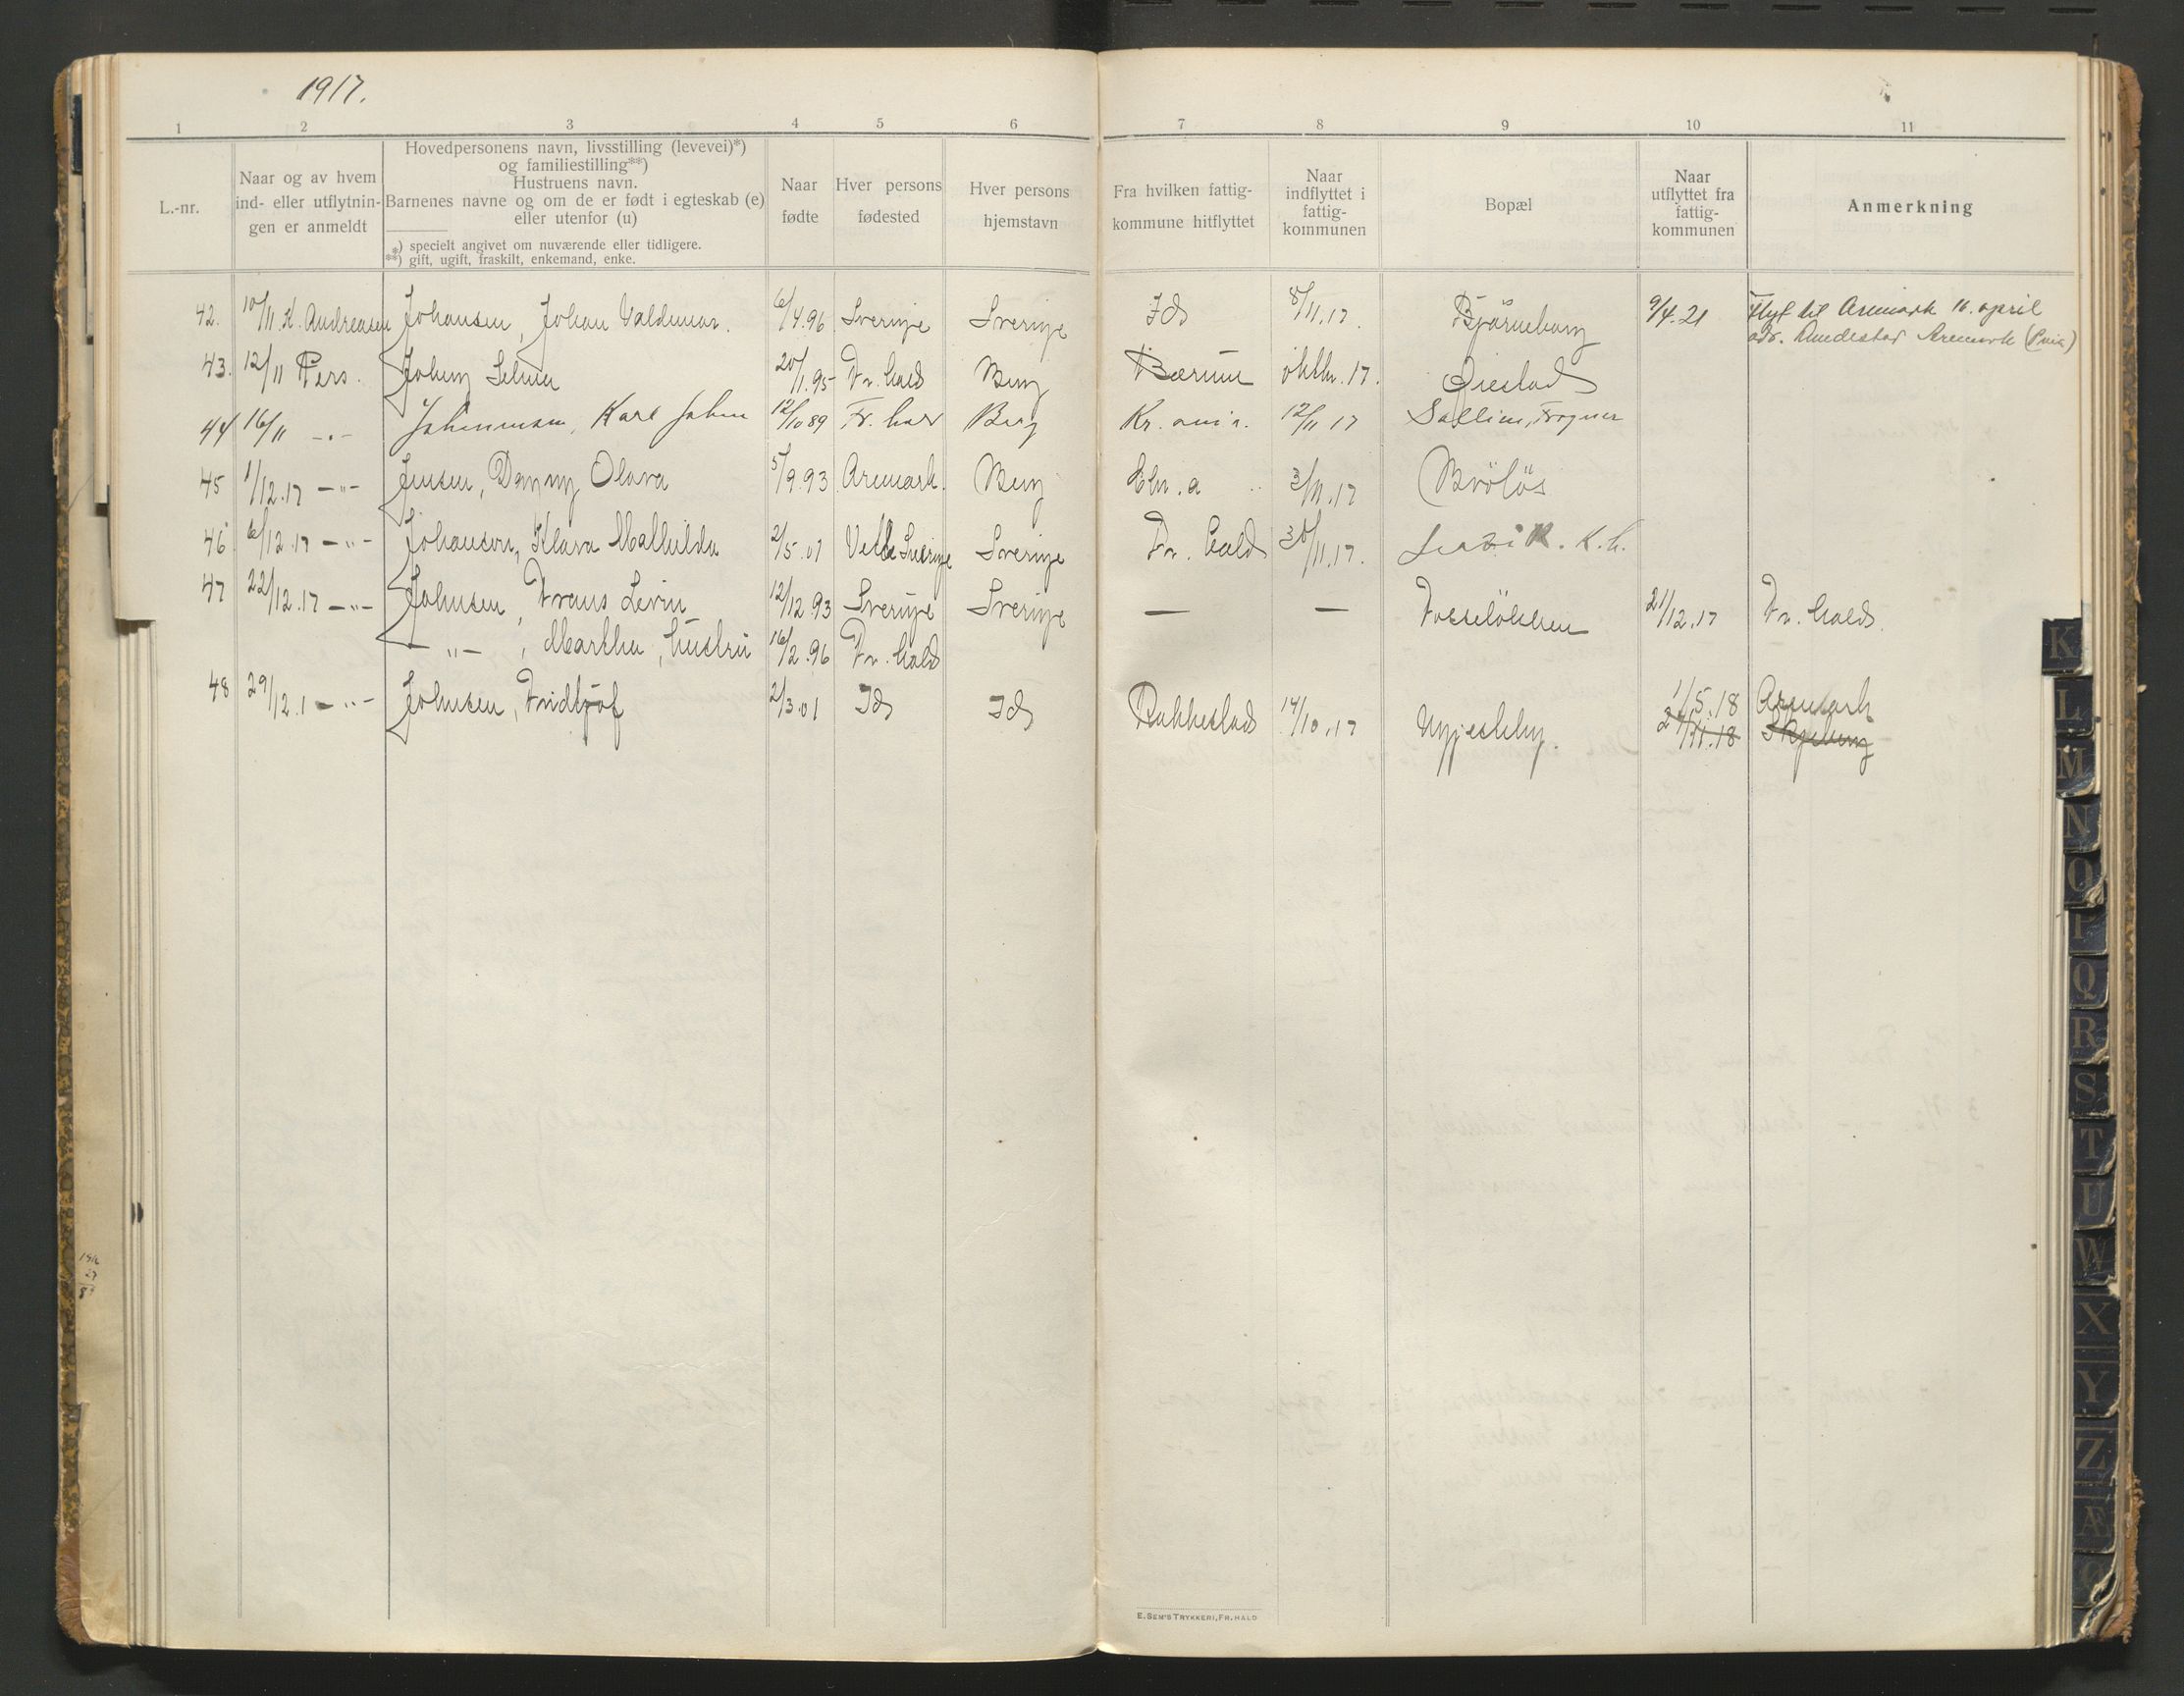 1917.
1 2 3 4 5 6 7 8 9 10 11
L.-nr.
Naar og av hvem
ind- eller utflytnin-
gen er anmeldt
Hovedpersonens navn, livsstilling (levevei)*)
og familiestilling**)
Hustruens navn.
Barnenes navne og om de er født i egteskab (e)
eller utenfor (u)
*) specielt angivet om nuværende eller tidligere.
**) gift, ugift, fraskilt, enkemand, enke.
Naar
fødte
Hver persons
fødested
Hver persons
hjemstavn
Fra hvilken fattig-
kommune hitflyttet
Naar
indflyttet i
fattig-
kommunen
Bopæl
Naar
utflyttet fra
fattig-
kommunen
Anmerkning
42. 10/11 K. Andreasen Johansen, Johan Valdemar. 6/4.96 Sverige Sverige Id 8/11.17. Bjørneborg 9/4.21 Flyt til Aremark 16. april
adr. Aremark
43. 12/11 Pers. Johny Selma 20/1.95 Fr. hald Berg Bærum oktbr. 17. Øiestad
44 16/11 -"- Johannesen, Karl Johan 12/10 89 Fr. hald Berg Kr.ania. 12/11 17 Sollien, Frogner
45 1/12.17 -"- Jensen, Dagny Olava 5/9.93 Aremark. Berg Chr.a 3/11.17 Brölös
46 6/12.17 -"- Johanson, Klara Mathilda 2/5.01 Sverige Sverige Fr. hald 30/11.17.
47 22/12.17 -"- Johnsen, Frans Levin 12/12.93 Sverige Sverige — — Fosseløkken 21/12.17 Fr. hald.
-"-, Martha, hustru 16/2.96 Fr. hald
48 29/12.1 -"- Johnsen, Fridtjof 2/3.01 Id Id Rakkestad 14/10.17 Nygjesteby. 1/5.18 Aremark
24/11.18 Skjeberg
K
L
M
N
O
P
Q
R
S
T
U
W
X
Y
Z
Æ
E. SEM'S TRYKKERI, FR. HALD